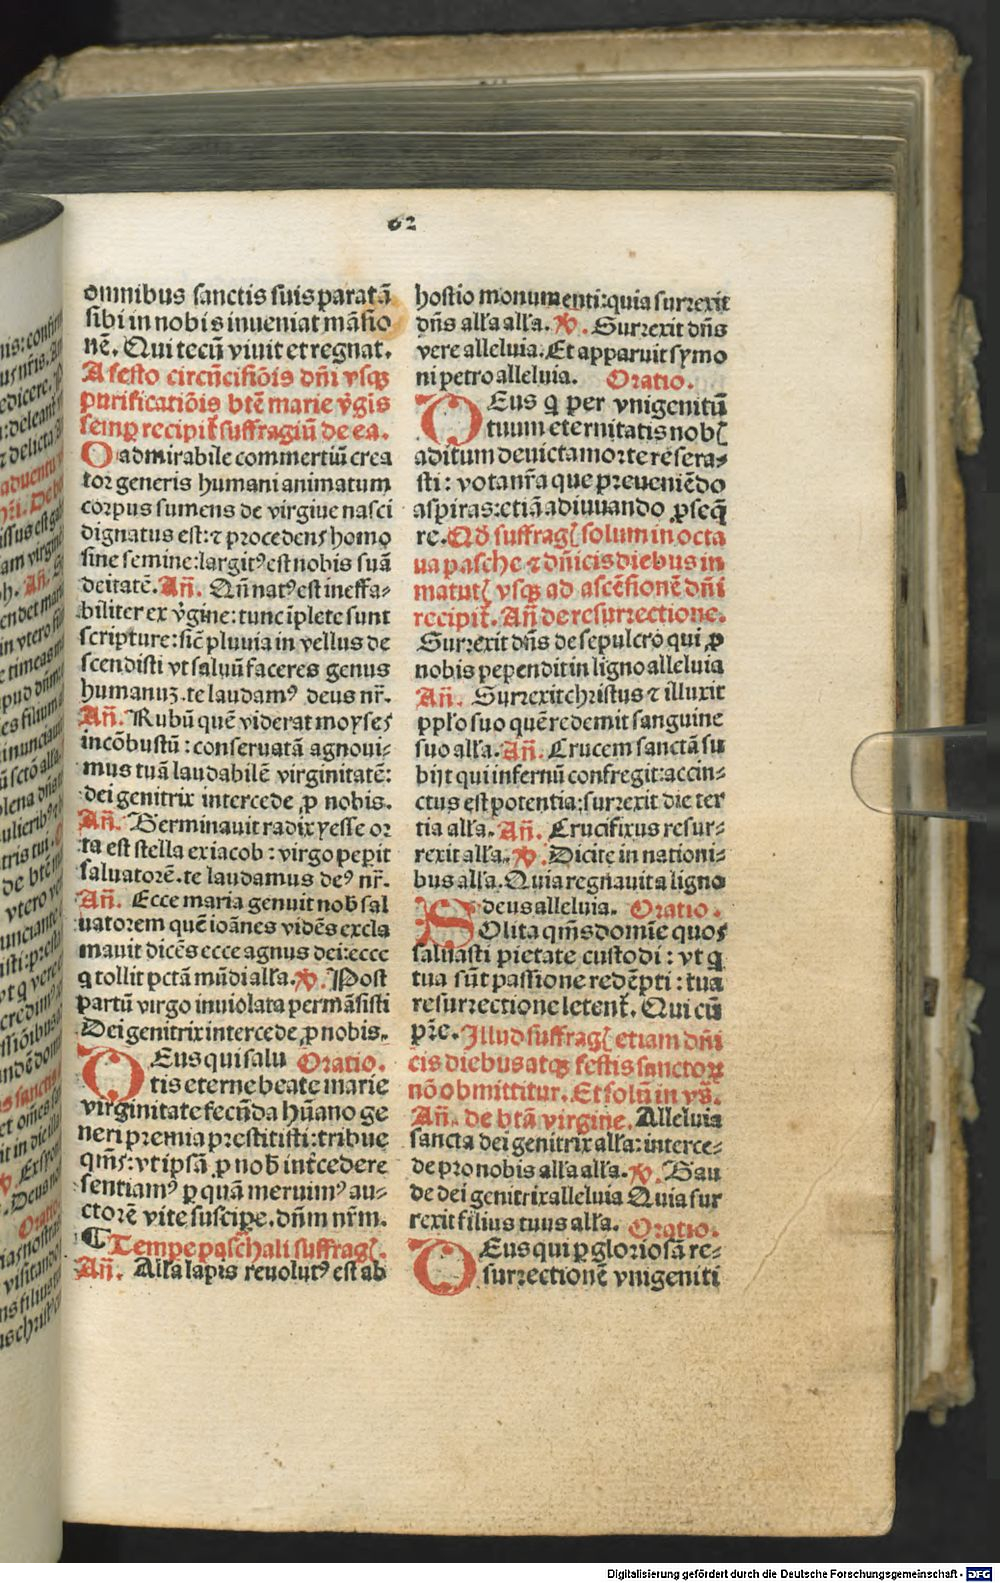 62
omnibus sanctis suis paratā
sibi in nobis inueniat māsio
nē. Qui tecū viuit et regnat.
A festo circūcisiōis dn̄i vsqꝫ
purificatiōis btē marie v̄gis
semꝑ recipit᷑ suffragiū de ea.
O admirabile commertiū crea
tor generis humani animatum
corpus sumens de virgiue nasci
dignatus est: ⁊ procedens homo
sine semine: largitꝰ est nobis suā
deitatē. An̄. Qn̄ natꝰ est ineffa⸗
biliter ex v̄gine: tunc īplete sunt
scripture: sic̄ pluuia in vellus de
scendisti vt saluū faceres genus
humanuꝫ. te laudamꝰ deus nr̄.
An̄. Rubū quē viderat moyses
incōbustū: conseruatā agnoui⸗
mus tuā laudabilē virginitatē:
dei genitrix intercede ꝓ nobis.
An̄. Germinauit radix yesse or
ta est stella ex iacob: virgo peperit
saluatorē. te laudamus deꝰ nr̄.
An̄. Ecce maria genuit nob̄ sal
uatorem quē ioānes vidēs excla
mauit dicēs ecce agnus dei: ecce
q̄ tollit pctā mūdi all'a. ℣. Post
partū virgo inuiolata permāsisti
Dei genitrix intercede ꝓ nobis.
DEus qui salu Oratio.
tis eterne beate marie
virginitate fecūda hūano ge
neri premia prestitisti: tribue
qm̄s: vt ipsā ꝓ nob̄ int̄cedere
sentiamꝰ ꝑ quā meruimꝰ au⸗
ctorē vite suscipere. dn̄m nr̄m.
¶ Tempe paschali suffragꝭ.
An̄. All'a lapis reuolutꝰ est ab
hostio monumenti: quia surrexit
dn̄s all'a all'a. ℣. Surrexit dn̄s
vere alleluia. Et apparuit symo
ni petro alleluia. Oratio.
DEus q̄ per vnigenitū
tuum eternitatis nobꝭ
aditum deuicta morte resera⸗
sti: vota nr̄a que preueniēdo
aspiras: etiā adiuuando ꝓseq̄
re. Qd̄ suffragꝭ solum in octa
ua pasche ⁊ dn̄icis diebus in
matutꝭ vsqꝫ ad ascēsionē dn̄i
recipit᷑. An̄ de resurrectione.
Surrexit dn̄s de sepulcro qui ꝓ
nobis pependit in ligno alleluia
An̄. Surrexit christus ⁊ illuxit
ppl'o suo quē redemit sanguine
suo all'a. An̄. Crucem sanctā su
bijt qui infernū confregit: accin⸗
ctus est potentia: surrexit die ter
tia all'a. An̄. Crucifixus resur⸗
rexit all'a. ℣. Dicite in nationi⸗
bus all'a. Quia regnauit a ligno
deus alleluia. Oratio.
SOlita qm̄s domīe quos
saluasti pietate custodi: vt q̄
tua sūt passione redēpti: tua
resurrectione letent᷑. Qui cū
pr̄e. Illud suffragꝭ etiam dn̄i
cis diebus atqꝫ festis sanctoꝝ
nō obmittitur. Et solū in vs̄.
An̄. de btā virgine. Alleluia
sancta dei genitrix all'a: interce⸗
de pro nobis all'a all'a. ℣. Gau
de dei genitrix alleluia Quia sur
rexit filius tuus all'a. Oratio.
DEus qui ꝑ gloriosā re⸗
surrectionē vnigeniti
Digitalisierung gefördert durch die Deutsche Forschungsgemeinschaft - DFG